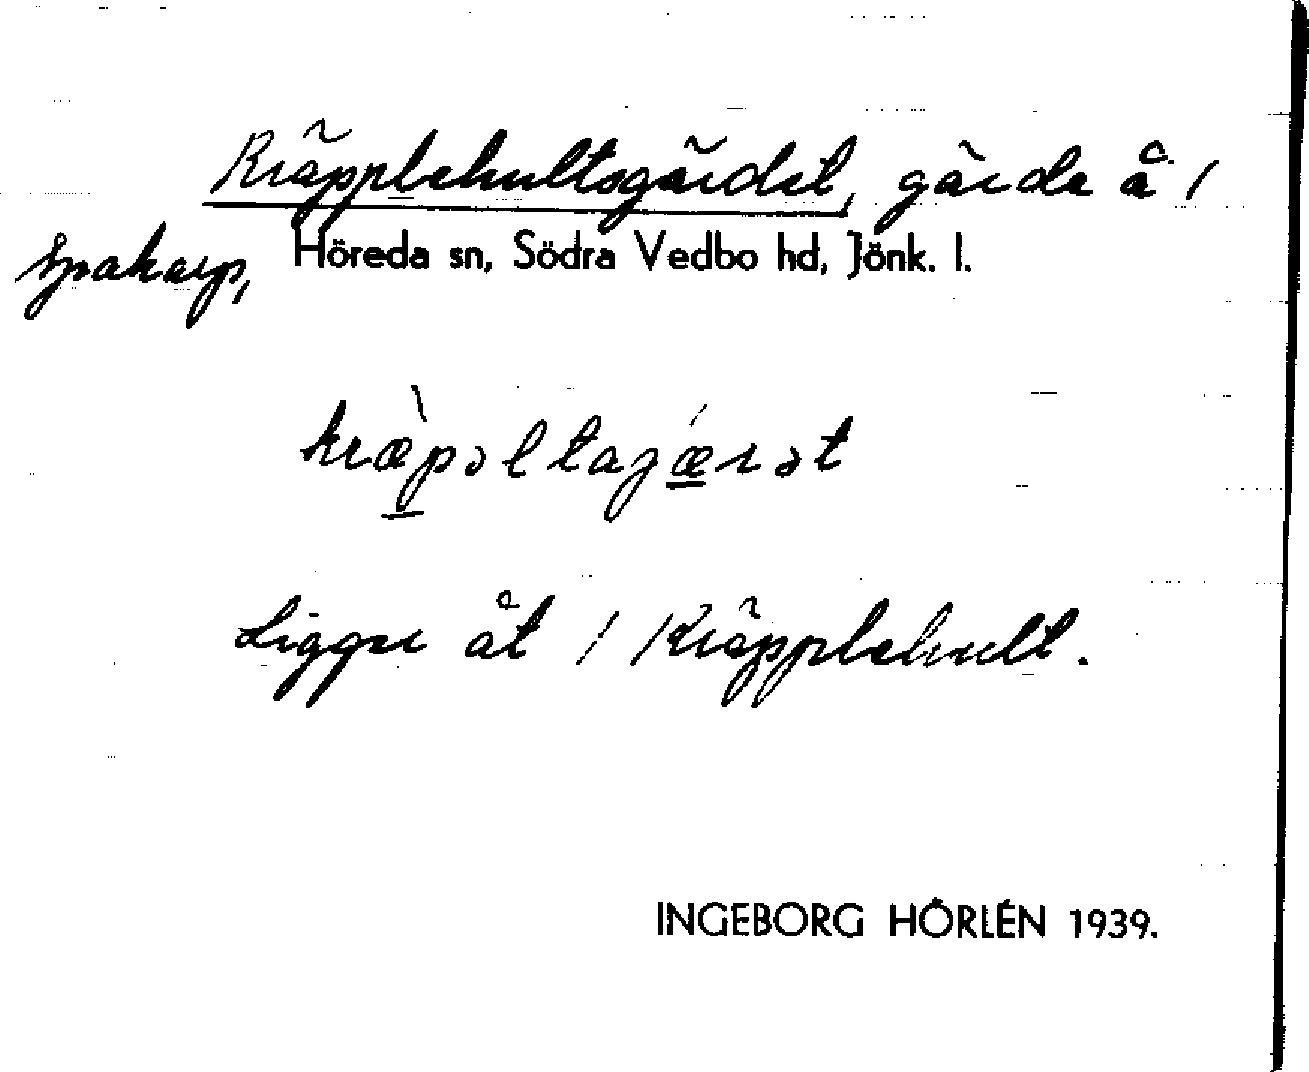 Kräpplehultsgärdet, gärde å /
Spakarp,
Höreda sn, Södra Vedbo hd, Jönk. l.
kræ̀pəltaɡǽrət
Ligger åt / Kräpplehult.
INGEBORG HÖRLÉN 1939.